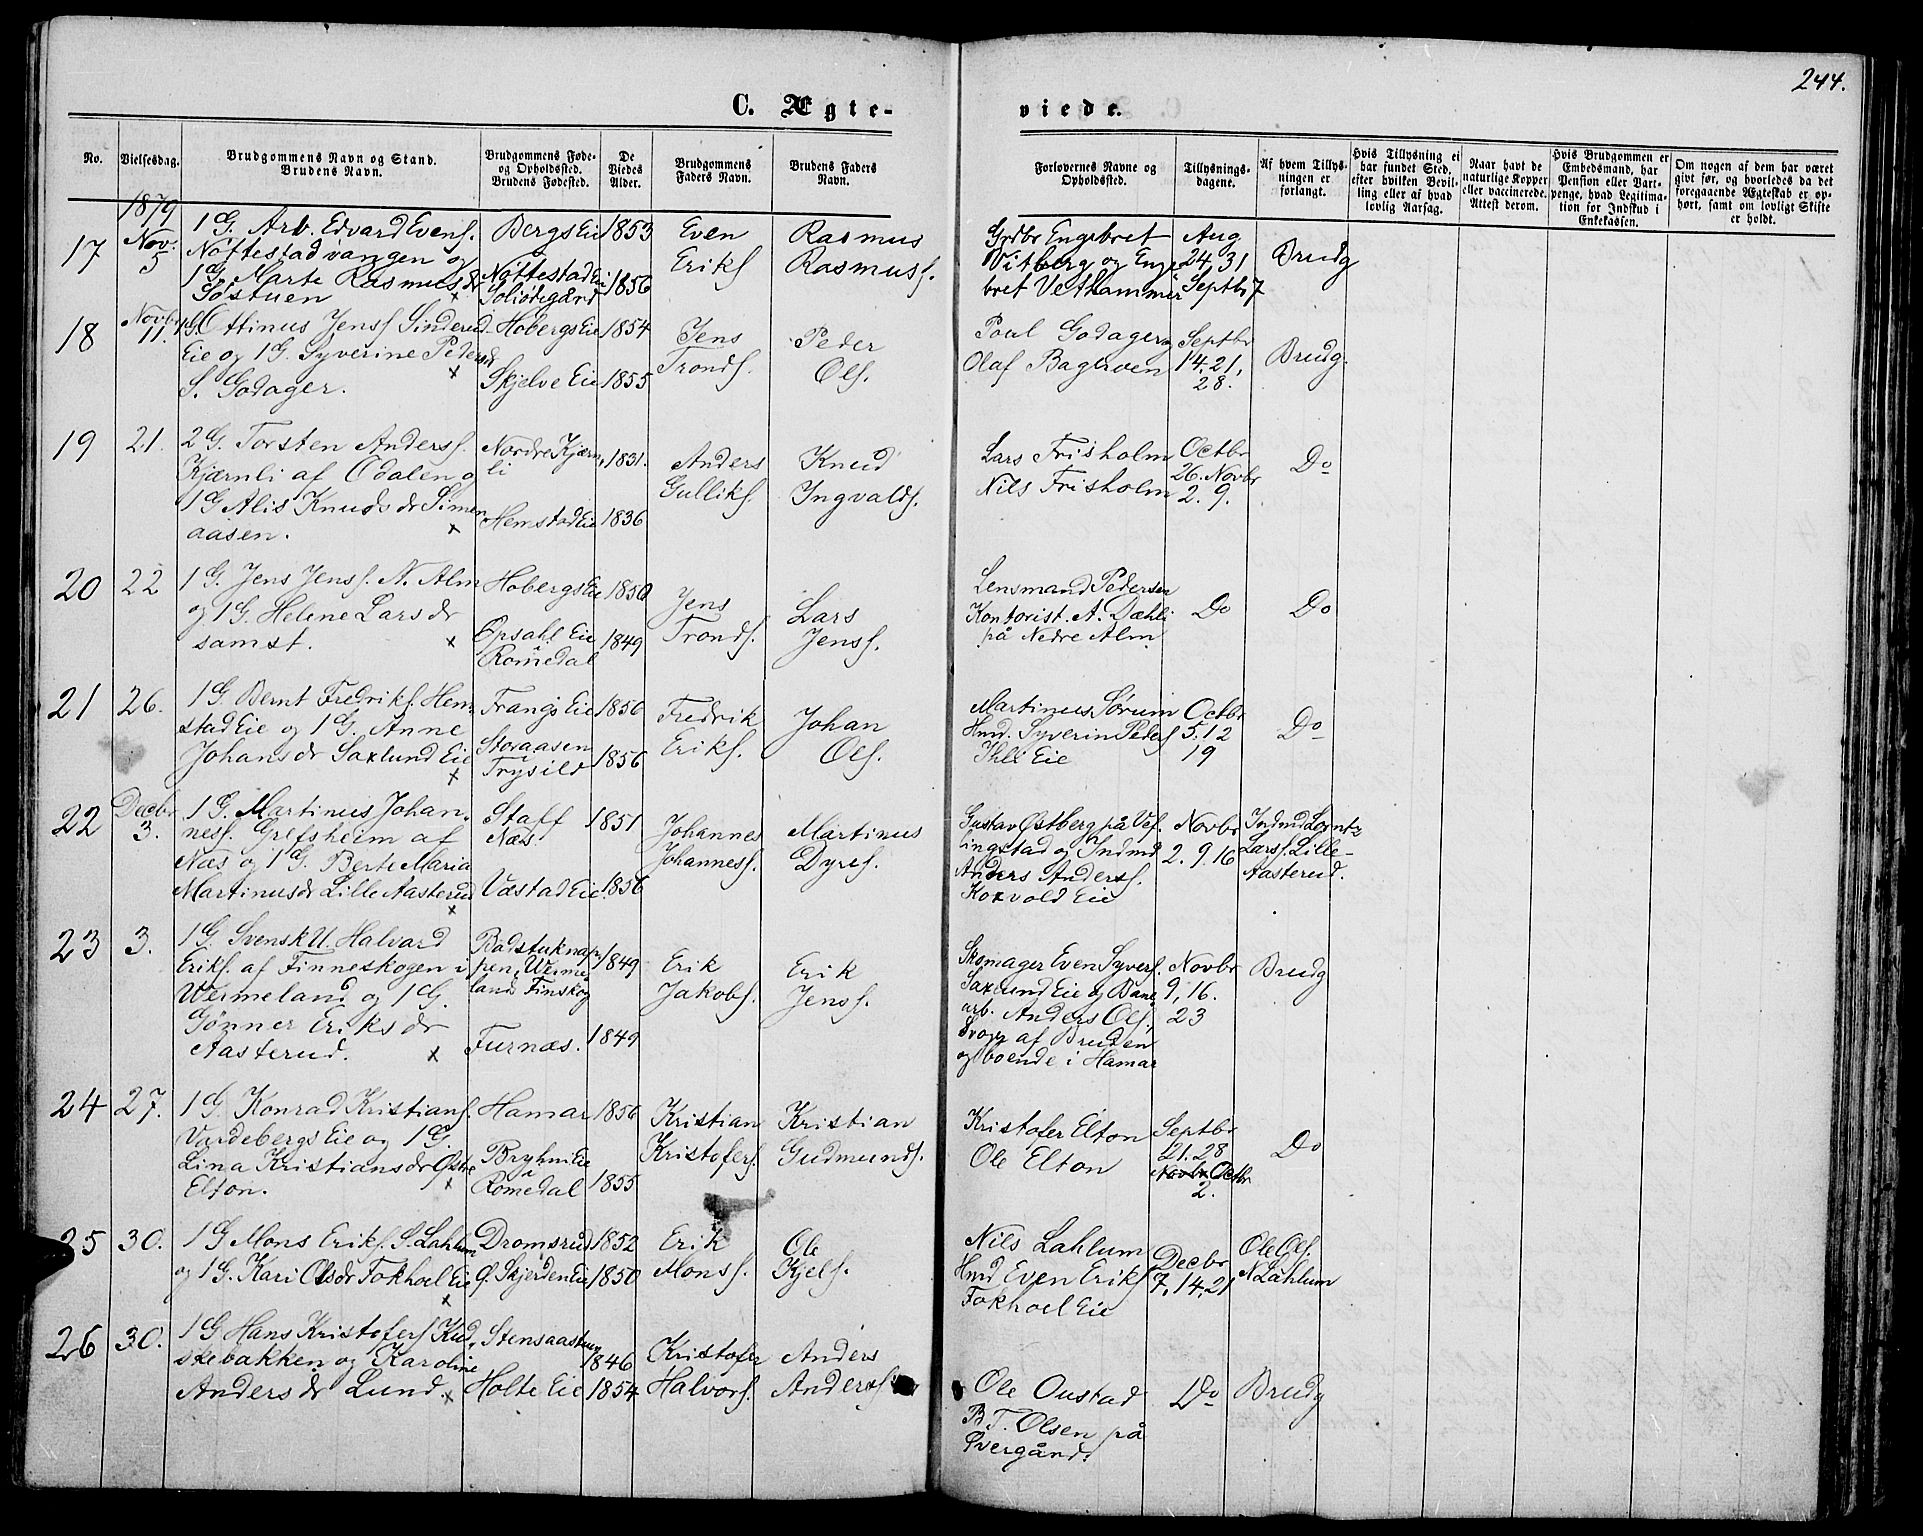 244.
C. Ægte-
viede.
No.
Vielsesdag.
Brudgommens Navn og Stand.
Brudens Navn.
Brudgommens Føde-
og Opholdssted.
Brudens Fødested.
De
Viedes
Alder.
Brudgommens
Faders Navn.
Brudens Faders
Navn.
Forlovernes Navne og
Opholdssted.
Tillysnings-
dagene.
Af hvem Tillys-
ningen er
forlangt.
Hvis Tillysning ei
har fundet Sted,
efter hvilken Bevil-
ling eller af hvad
lovlig Aarsag.
Naar havt de
naturlige Kopper
eller vaccinerede.
Attest derom.
Hvis Brudgommen er
Embedsmand, har
Pension eller Vart-
penge, hvad Legitima-
tion for Indskud i
Enkekassen.
Om nogen af dem har været
givt før, og hvorledes da det
foregaaende Ægteskab er op-
hørt, samt om lovligt Skifte
er holdt.
1879
17
Nov.
5
1 G. Arb. Edvard Evens.
Nøttestadvangen og
1 G Marte Rasmusdr
Søstuen
x
Bergs Eie
Nøttestad Eie
1853
1856
Even
Eriks
Rasmus
Rasmuss.
Grdbr Engebret
Vitberg og Enge
bret Vethammer
Aug
24. 31
Septbr 7
Brudg
18
Novbr
11.
1 G. Ottinus Jenss Sinderud
Eie og 1 G. Syverine Pedersdr
S. Godager.
x
Hobergs Eie
Skjelve Eie
1854
1855
Jens
Tronds.
Peder
Ols.
Poul Godager og
Olaf Bagerven
Septbr
14. 21,
28.
Brudg.
19
21.
2 G. Torsten Anderss.
Kjærnli af Odalen og
1 G Alis Knudsdr Simen
aasen.
x
Nordre Kjærn,
li
Hemstad Eie
1831.
1836
Anders
Gulliks
Knud
Ingvalds.
Lars Frisholm
Nils Frisholm
Octbr
26. Novbr
2. 9.
Do
20
22
1 G. Jens Jenss. N. Alm
og 1 G. Helene Larsdr
samst.
x
Hobergs Eie
Opsahl Eie
i
Romedal
1850
1849
Jens
Tronds.
Lars
Jenss.
Lensmand Pedersen
Kontorist. A. Dæhli
på Nedre Alm
Do
Do
21
26.
1 G. Bernt Fredriks. Hem
stad Eie og 1 G. Anne
Johansdr Saxlund Eie
x
Frangs Eie
Storaasen
Trysild
1856
1856
Fredrik
Eriks.
Johan
Ols.
Martinus Sørum
Hmd. Syverin Peders
Ihle Eie
Octbr
5. 12
19
Do
22
Decbr
3.
1 G. Martinus Johan,
ness. Grefsheim af
Næs og 1 G. Berte Maria
Martinusdr Lille Aasterud
x
Staff
Næs.
Vestad Eie.
1851
1856
Johannes
Johanness.
Martinus
Dyres.
Gustav Østberg på Vef.
lingstad og Indmd
Anders Anderss.
Koxvold Eie
Novbr
2. 9. 16
Indmd Lornts
Larss. Lille-
Aasterud.
23
3.
1 G. Svensk U. Halvard
Eriks. af Finneskogen i
Wermeland og 1 G.
Gønner Eriksdr
Aasterud.
x
Badstuknap
pen, Werme
lands Finskog
Furnæs.
1849
1849
Erik
Jakobs.
Erik
Jenss.
Skomager Even Syvers.
Saxlund Eie og Bane,
arb. Anders Ols,
Svoger af Bruden
og boende i Hamar
Novbr
9, 16.
23
Brudg
24
27.
1 G. Konrad Kristians.
Vardebergs Eie og 1 G.
Lina Kristiansdr Østre
Elton.
x
Hamar
Bryhni Eie
i
Romedal
1856
1855
Kristian
Kristofers.
Kristian
Gudmunds.
Kristofer Elton
Ole Elton
Septbr
21. 28
Novbr Octbr
2.
Do
25
30.
1 G Mons Eriks. S. Lahlum
og 1 G. Kari Olsdr Fokhoel Eie
x
Dromsrud
Ø. Skjerden Eie
1852
1850
Erik
Monss.
Ole
Kjels.
Nils Lahlum
Hmd Even Eriks
Fokhoel Eie
Decbr
7, 14, 21
Ole Ols.
N Lahlum
26
30.
1 G Hans Kristofers Kud,
skebakken og Karoline
Andersdr Lund.
x
Stensaastuen
Holte Eie
1846
1854
Kristofer
Halvors.
Anders
Anderss
Ole Oustad
B. T. Olsen på
Øvergård.
Do
Brudg